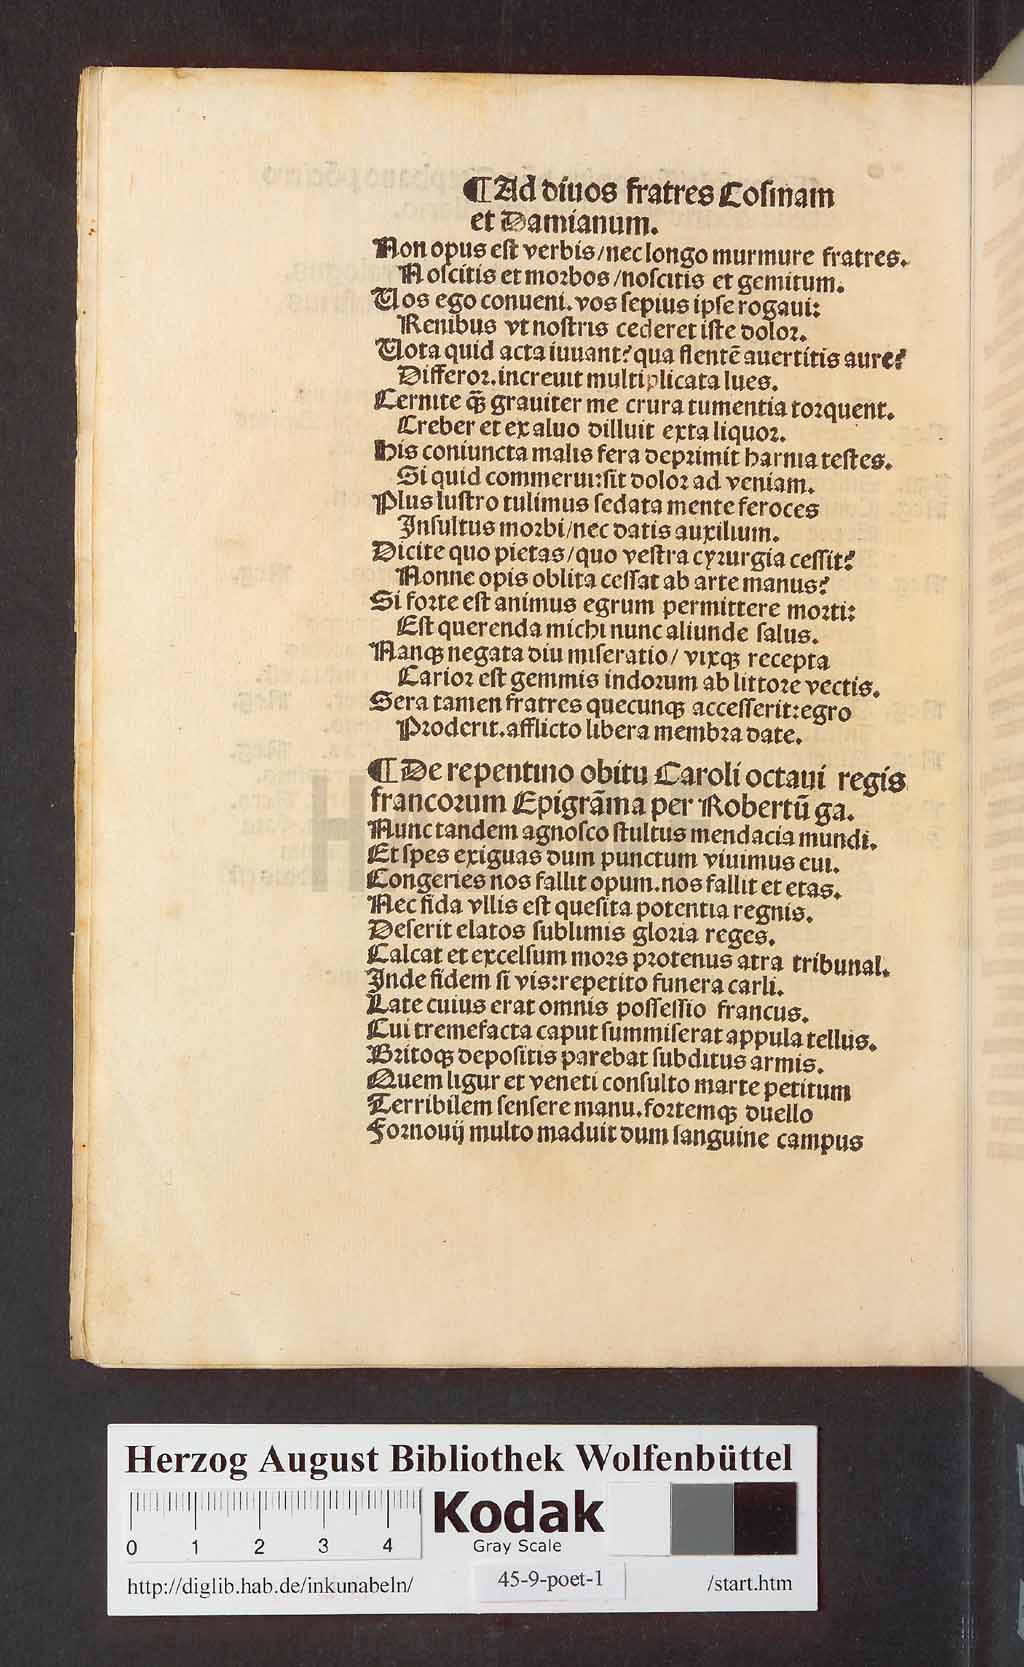 ¶Ad diuos fratres Cosmam
et Damianum.
Non opus est verbis/nec longo murmure fratres.
Noscitis et morbos/noscitis et gemitum.
Uos ego conueni. vos sepius ipse rogaui:
Renibus vt nostris cederet iste dolor.
Uota quid acta iuuant? qua flentē auertitis aure?
Differor. increuit multiplicata lues.
Cernite q̄ȝ grauiter me crura tumentia torquent.
Creber et ex aluo dilluit exta liquor.
His coniuncta malis fera deprimit harnia testes.
Si quid commerui: sit dolor ad veniam.
Plus lustro tulimus sedata mente feroces
Insultus morbi/nec datis auxilium.
Dicite quo pietas/quo vestra cyrurgia cessit?
Nonne opis oblita cessat ab arte manus?
Si forte est animus egrum permittere morti:
Est querenda michi nunc aliunde salus.
Nanqȝ negata diu miseratio/ vixqȝ recepta
Carior est gemmis indorum ab littore vectis.
Sera tamen fratres quecunqȝ accesserit: egro
Proderit. afflicto libera membra date.
¶De repentino obitu Caroli octaui regis
francorum Epigrāma per Robertū ga.
Nunc tandem agnosco stultus mendacia mundi.
Et spes exiguas dum punctum viuimus eui.
Congeries nos fallit opum. nos fallit et etas.
Nec fida vllis est quesita potentia regnis.
Deserit elatos sublimis gloria reges.
Calcat et excelsum mors protenus atra tribunal.
Inde fidem si vis: repetito funera carli.
Late cuius erat omnis possessio francus.
Cui tremefacta caput summiserat appula tellus.
Britoqȝ depositis parebat subditus armis.
Quem ligur et veneti consulto marte petitum
Terribilem sensere manu. fortemqȝ duello
Fornouij multo maduit dum sanguine campus
Herzog August Bibliothek Wolfenbüttel
0 1 2 3 4
Kodak
Gray Scale
http://diglib.hab.de/inkunabeln/ 45-9-poet-1 /start.htm